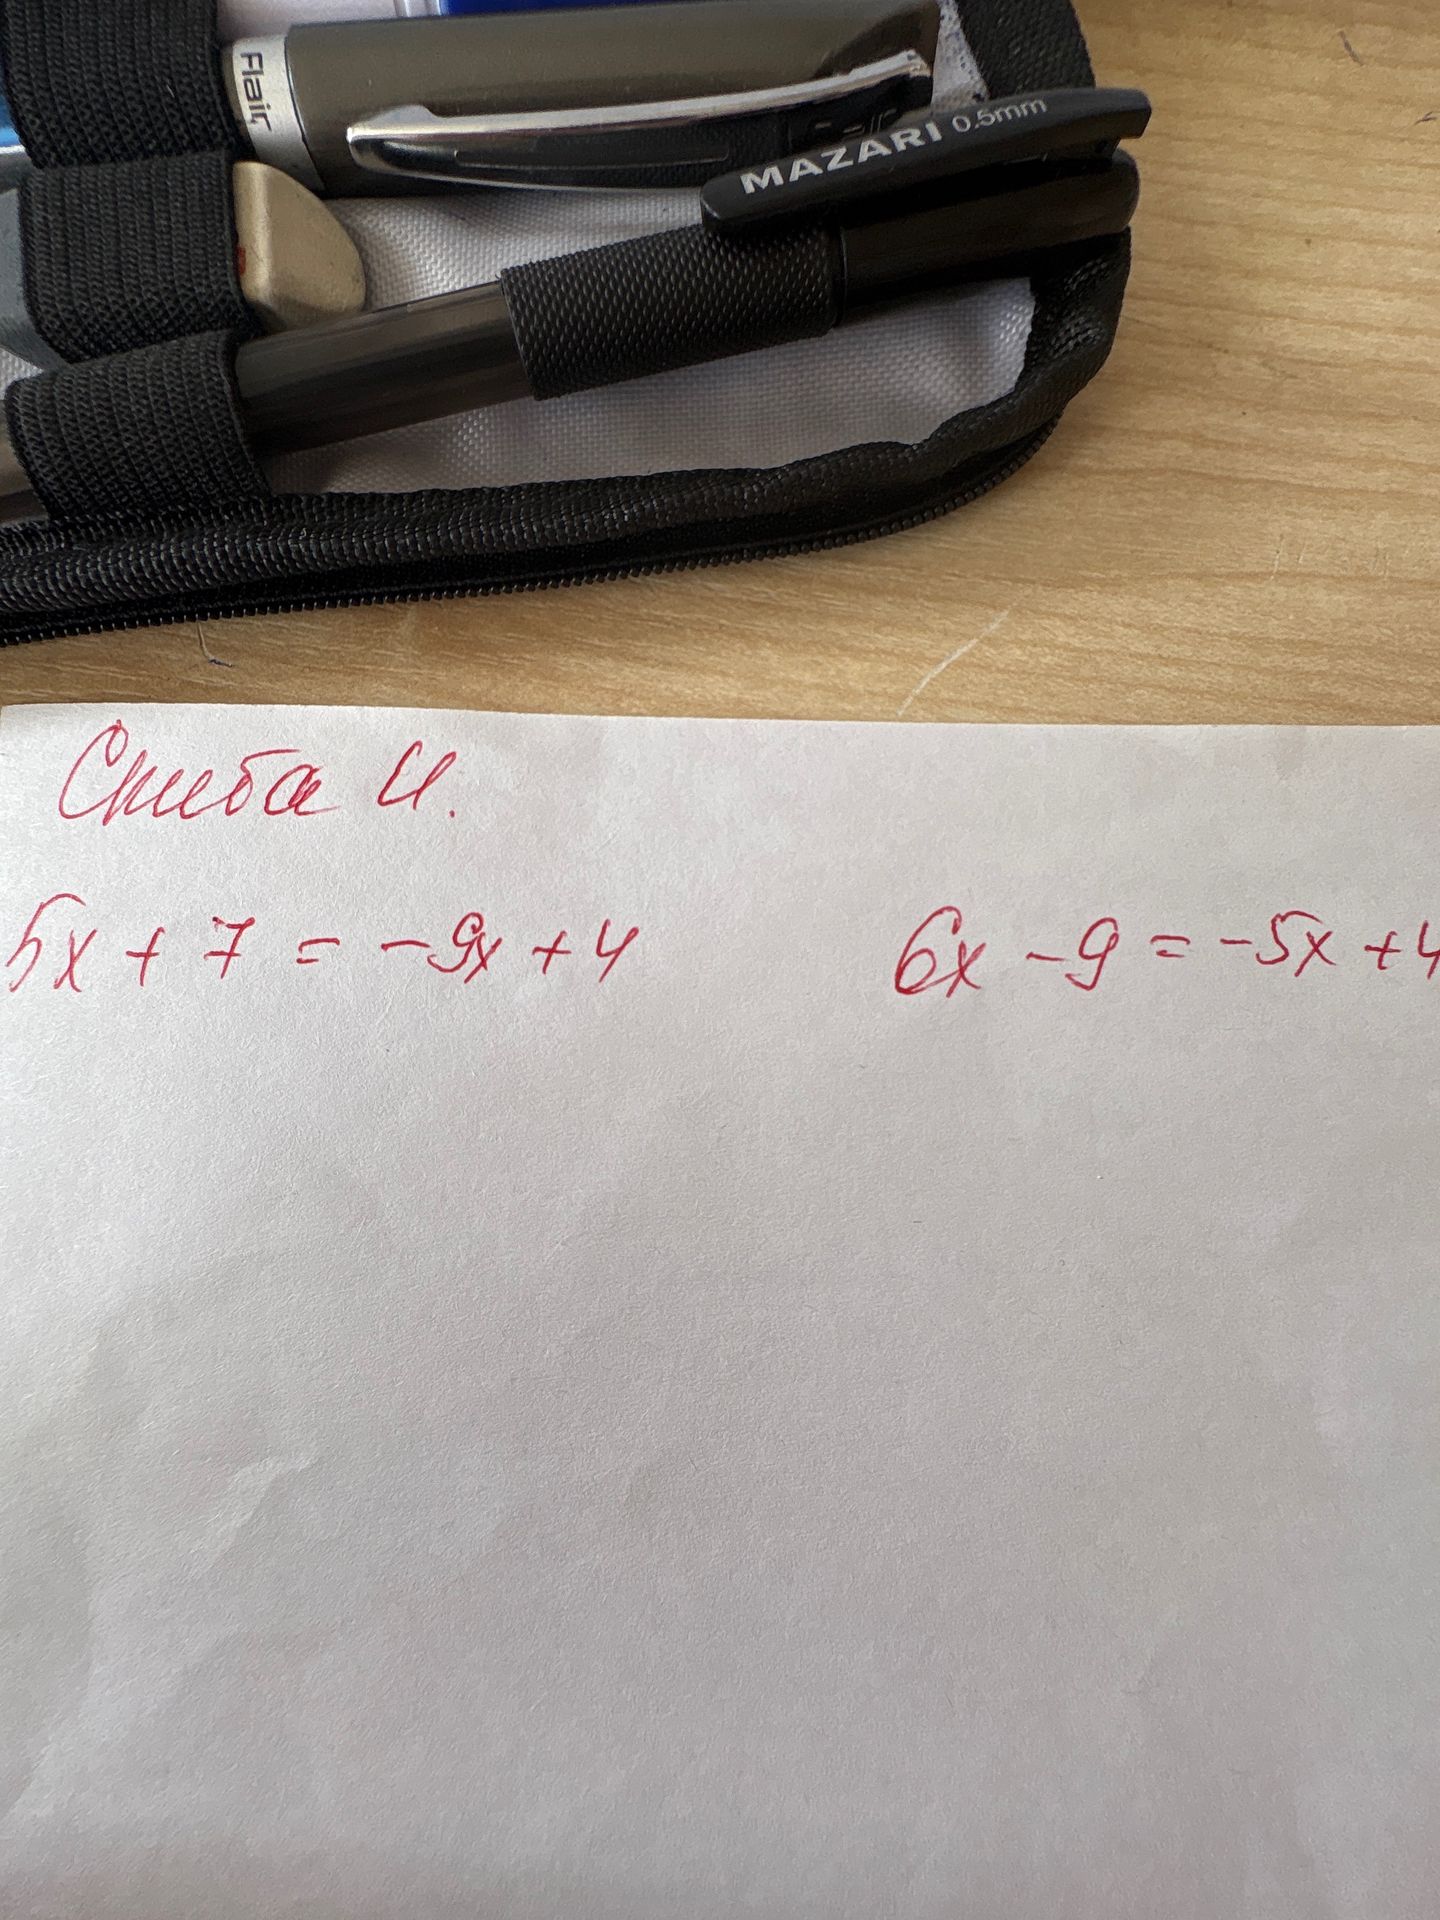 Flair
MAZARI 0.5mm
Скиба И.
5x + 7 = -9x + 4
6x - 9 = -5x + 4